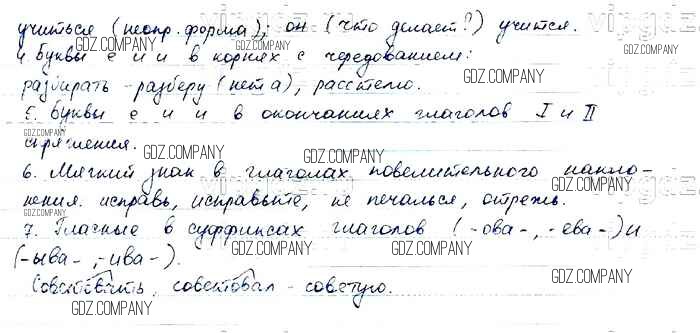 учиться (неопр. форма); он (что делает?) учится.
4. Буквы е и и в корнях с чередованием:
разбирать - разберу (нет а), расстелю.
5. Буквы е и и в окончаниях глаголов I и II
спряжения.
6. Мягкий знак в глаголах повелительного накло-
нения. исправь, исправьте, не печалься, отрежь.
7. Гласные в суффиксах глаголов (-ова-, -ева-) и
(-ыва-, -ива-).
Советовать, советовал - советую.
GDZ.COMPANY
vipgdz